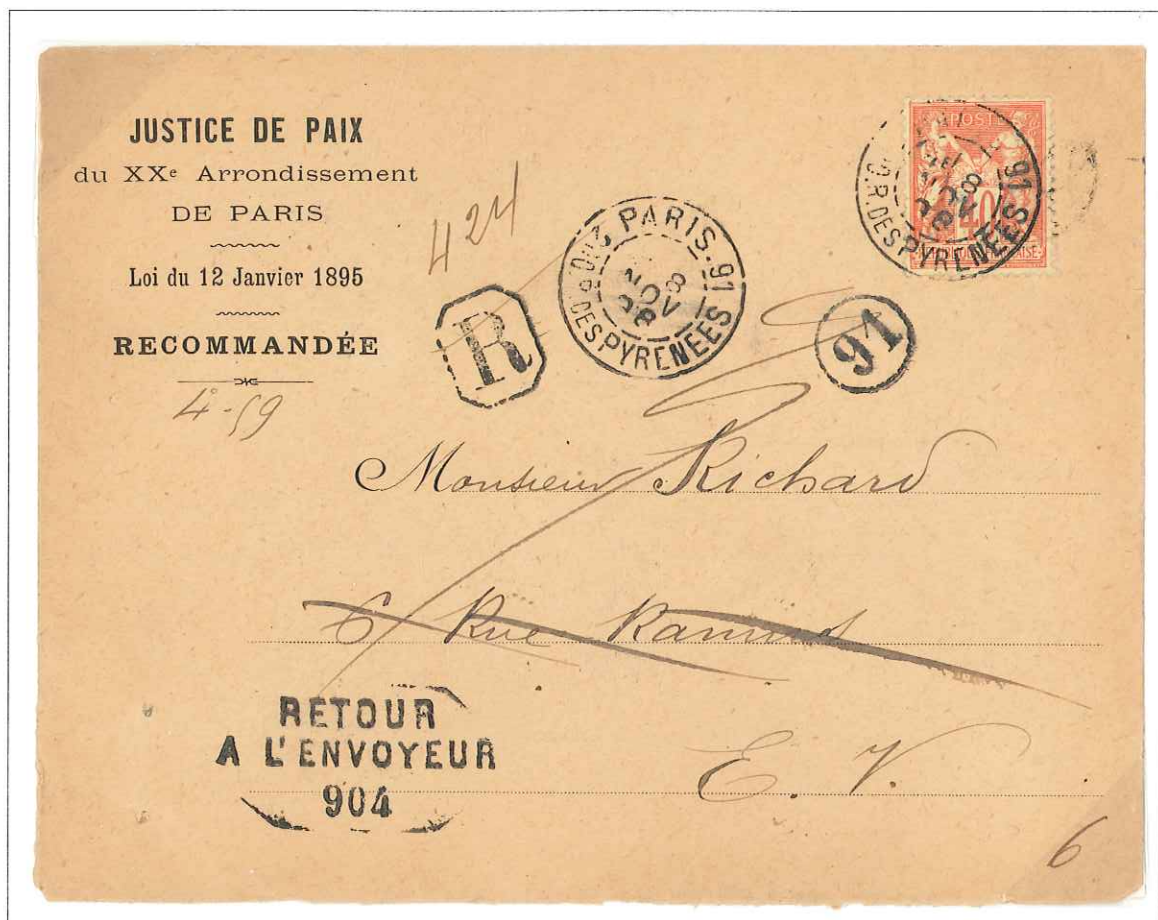 JUSTICE DE PAIX
du XXe Arrondissement
DE PARIS
Loi du 12 Janvier 1895
RECOMMANDÉE
424
R
PARIS-91
8
NOV
98
R. DES PYRENEES
POSTE
40
91
8
NOV
98
R. DES PYRENEES
91
Monsieur Richard
6 Rue
E. V.
RETOUR
A L'ENVOYEUR
904
6